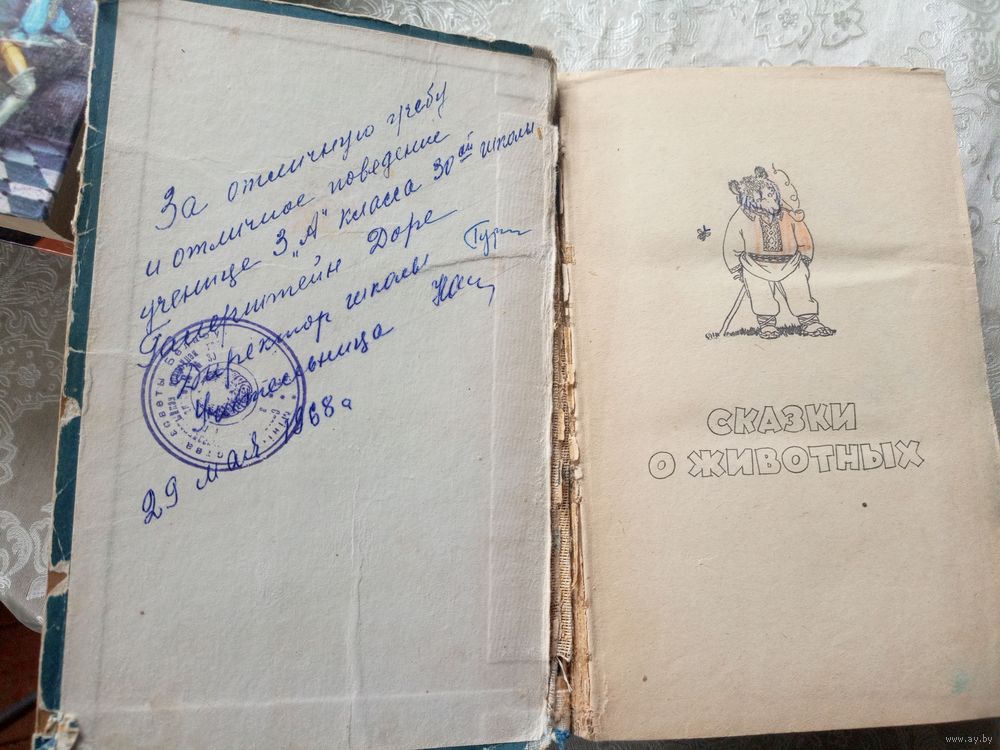 За отличную учебу
и отличное поведение
ученице 3 „А" класса 30ой школы
Гамерштейн Доре
Директор школы
Учительница
29 мая 1968 г
СКАЗКИ
О ЖИВОТНЫХ
www.ay.by